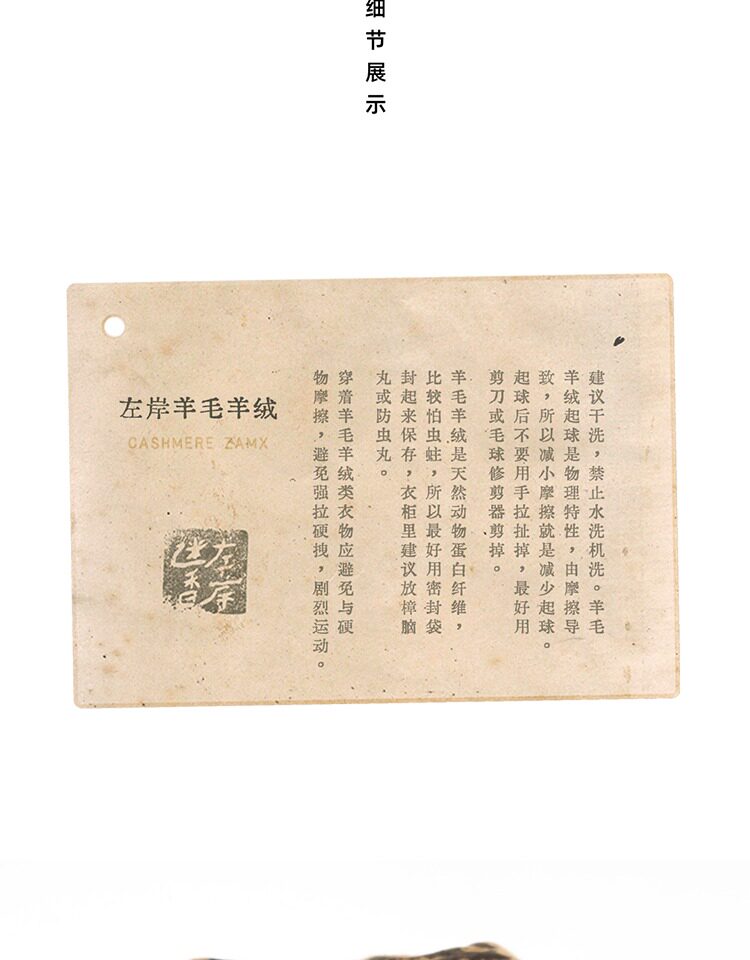 细节展示
左岸羊毛羊绒
CASHMERE ZAMX
左岸
迷香
建议干洗，禁止水洗机洗。羊毛
羊绒起球是物理特性，由摩擦导
致，所以减小摩擦就是减少起球。
起球后不要用手拉扯掉，最好用
剪刀或毛球修剪器剪掉。
羊毛羊绒是天然动物蛋白纤维，
比较怕虫蛀，所以最好用密封袋
封起来保存，衣柜里建议放樟脑
丸或防虫丸。
穿着羊毛羊绒类衣物应避免与硬
物摩擦，避免强拉硬拽，剧烈运动。